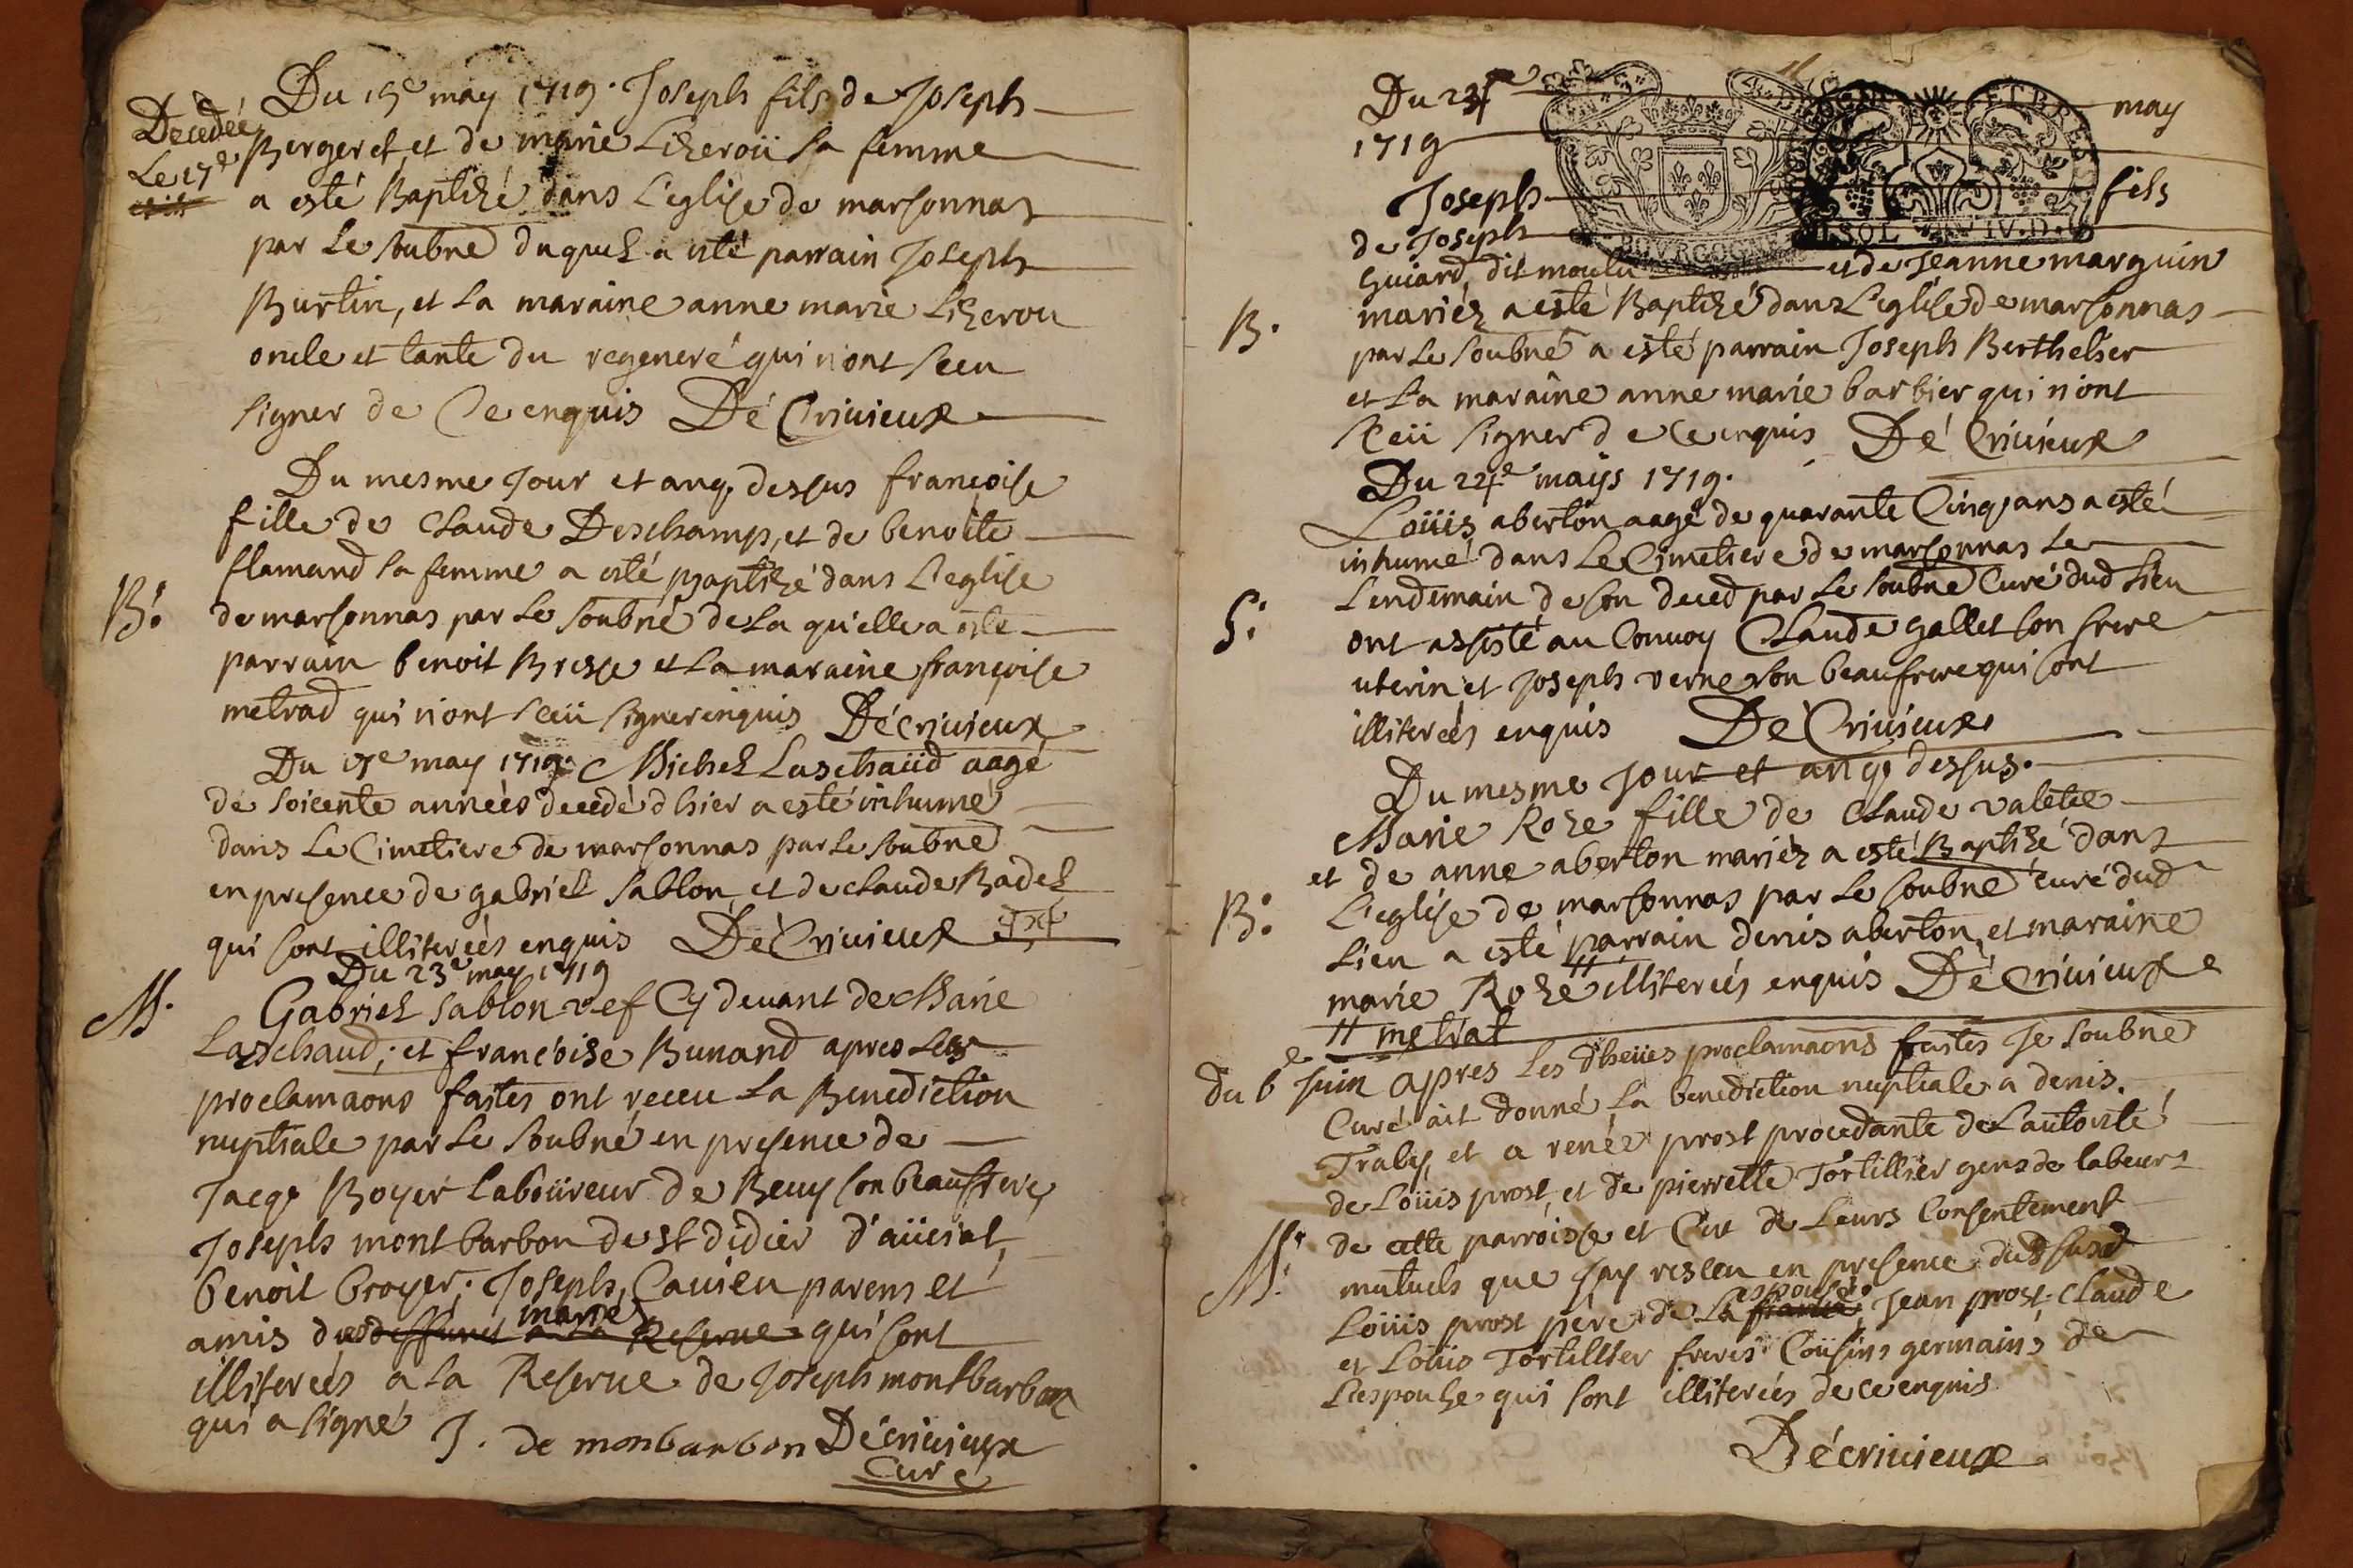 Du 15e may 1719. Joseph fils de Joseph
Decedeé
Le 17e
Bergeret et de marie Lizeroü sa femme
a esté Baptizé dans L'eglise de marsonnas
par Le soubné duquel a esté parrain Joseph
Burtin, et La maraine anne marie Lizerou
oncle et tante du regeneré qui n'ont sceu
signer de Ce enquis Dé Crivieux
Du mesme Jour et anq. dessus françoise
fille de Claude Deschamp, et de benoite
flamand sa femme a esté Baptizé dans L'eglise
B:
de marsonnas par Le soubné de La qu'elle a esté
parrain benoit Brisse et La maraine françoise
metrad qui n'ont sceü signer enquis Décrivieux
Du 17e may 1719. Michel Laschaüd aagé
de soicente anneés decedé d'hier a esté inhumé
dans Le Cimetiere de marsonnas par Le soubné
en presence de gabriel sablon, et de claude Badel
qui sont illitereés enquis Dé Crivieux
Du 23e may 1719
M.
Gabriel sablon vef Cy devant de Marie
Laschaud; et françoise Bunand apres Les
proclamaons faites ont receu La Benediction
nuptiale par Le soubné en presence de
Jacq. Boyer laboüreur de Beny son beaufrere,
Joseph montbarbon de st didier d'aüsiat,
benoit broyer; Joseph, Cavien parens et
mariés
amis dud deffunct a La Reserve qui sont
illitereés a la Reserve de Joseph montbarbon
qui a signé J. de monbarbon Décrivieux
Curé
Du 23e may
1719
BOURGOGNE
ET BRESSE
SOL IV.D.
Joseph fils
de Joseph
Guiard, dit moulu et de Jeanne marguin
mariéz a esté Baptizé dans L'eglise de marsonnas
B.
par Le soubné a esté parrain Joseph Berthelier
et La maraîne anne marie barbier qui n'ont
sceü signer de Ce enquis Dé Crivieux
Du 24e mays 1719.
Loüis aberton aagé de quarante Cinq ans a esté
inhumé dans Le Cimetiere de marsonnas Le
S:
Lendemain de son deced par Le soubné Curé dud Lieu
ont assisté au Convoy Claude gallet son frere
uterin et Joseph verne son beaufrere qui sont
illitereés enquis Dé Crivieux
Du mesme Jour et anq. dessus.
Marie Roze fille de Claude valetie
et de anne aberton mariéz a esté Baptizé dans
B:
L'eglise de marsonnas par Le soubné curé dud
Lieu a esté parrain denis aberton, et maraine
marie Rozé // illitereés enquis Dé Crivieux
// metrat
du 6e Juin apres Les dheües proclamaons faites Je soubné
Curé ait donné La benediction nuptiale a denis
Traly, et a renée prost procedante de L'autorité
de Loüis prost, et de pierrette Tortillier gens de labeurs
de cette parroisse et Cue de Leurs Consentement
M:
mutuels que jay resceu en presence dud susd
espouse
Loüis prost pere de La fiancée, Jean prost, claude
et Loüis Tortillier freres Coüsins germains de
L'espouhe qui sont illitereés de ce enquis
Décrivieux